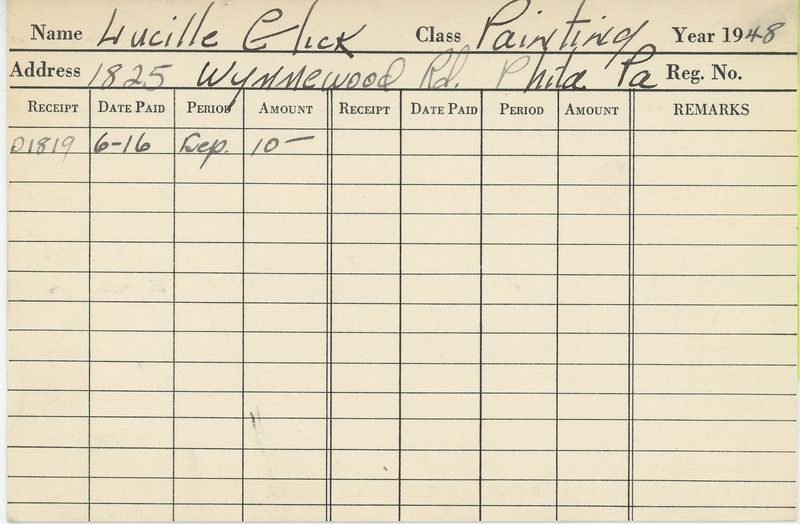 Name Lucille Glick Class Painting Year 1948
Address 1825 Wynnewood Rd. Phila. Pa Reg. No.
RECEIPT DATE PAID PERIOD AMOUNT RECEIPT DATE PAID PERIOD AMOUNT REMARKS
D1819 6-16 Dep. 10-